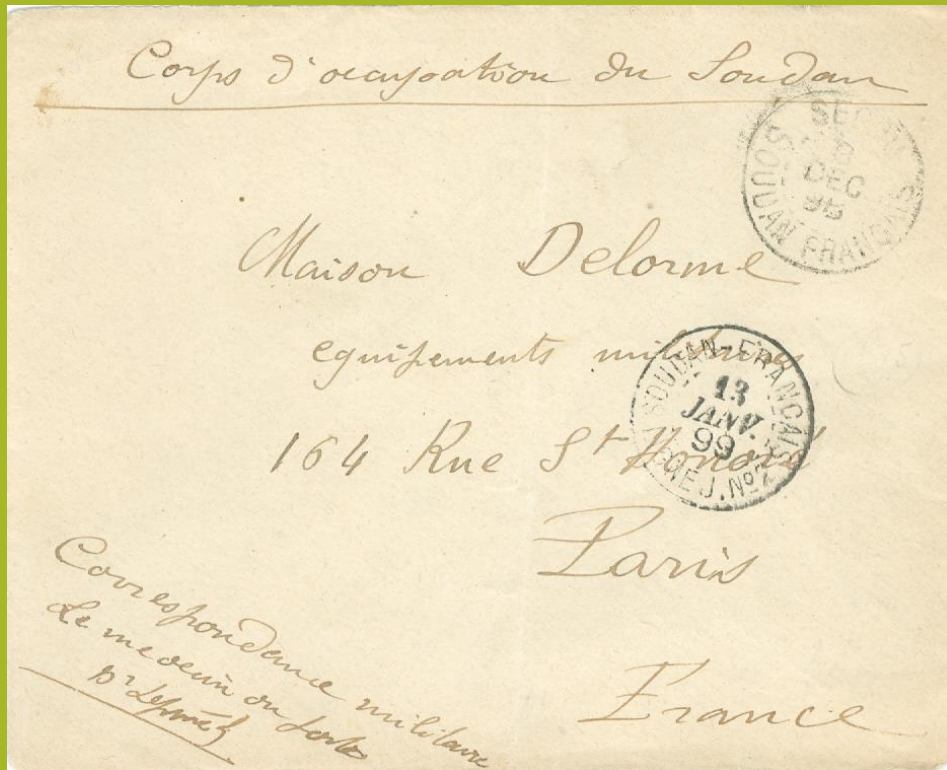 Corps d'occupation du Soudan
SE
DEC
SOUDAN FRANCAIS
Maison Delorme
equipements militaires
SOUDAN-FRANCAIS
13
JANV.
99
J. Nº2
164 Rue St Honoré
Paris
France
Correspondance militaire
Le medecin du poste
Dr